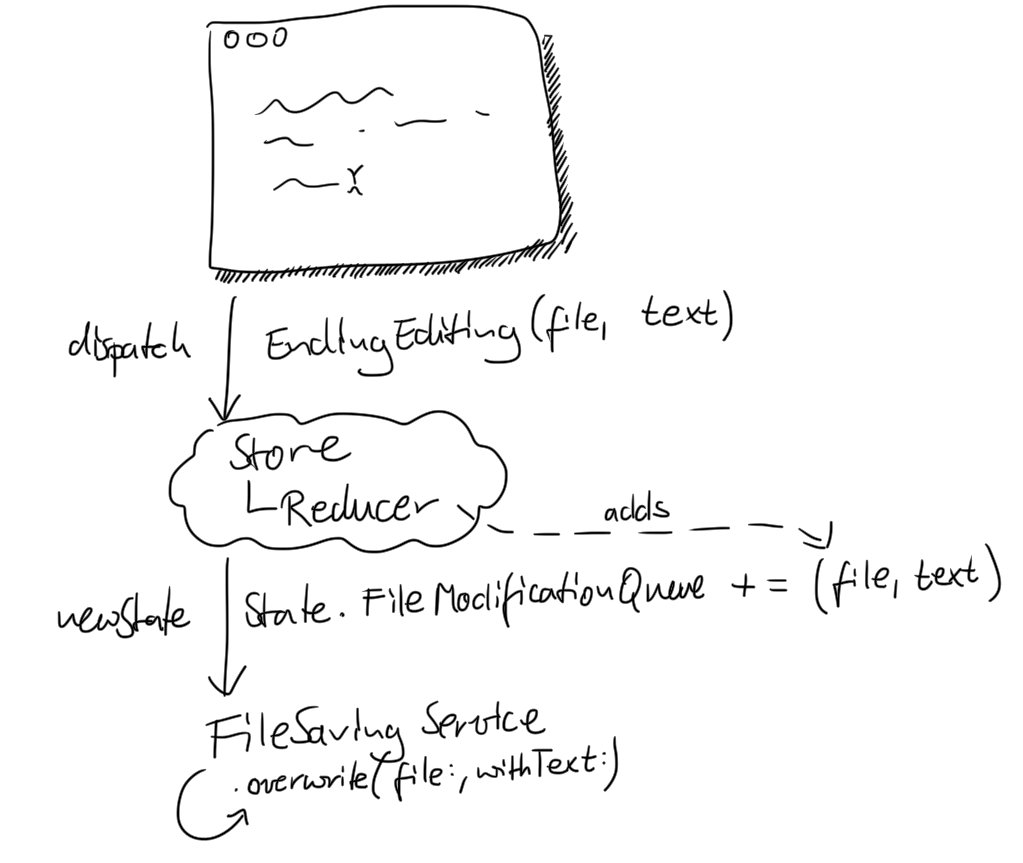 dispatch EndingEditing(file, text)
Store
Reducer
adds
newState State.FileModificationQueue += (file, text)
FileSaving Service
.overwrite(file:, withText:)